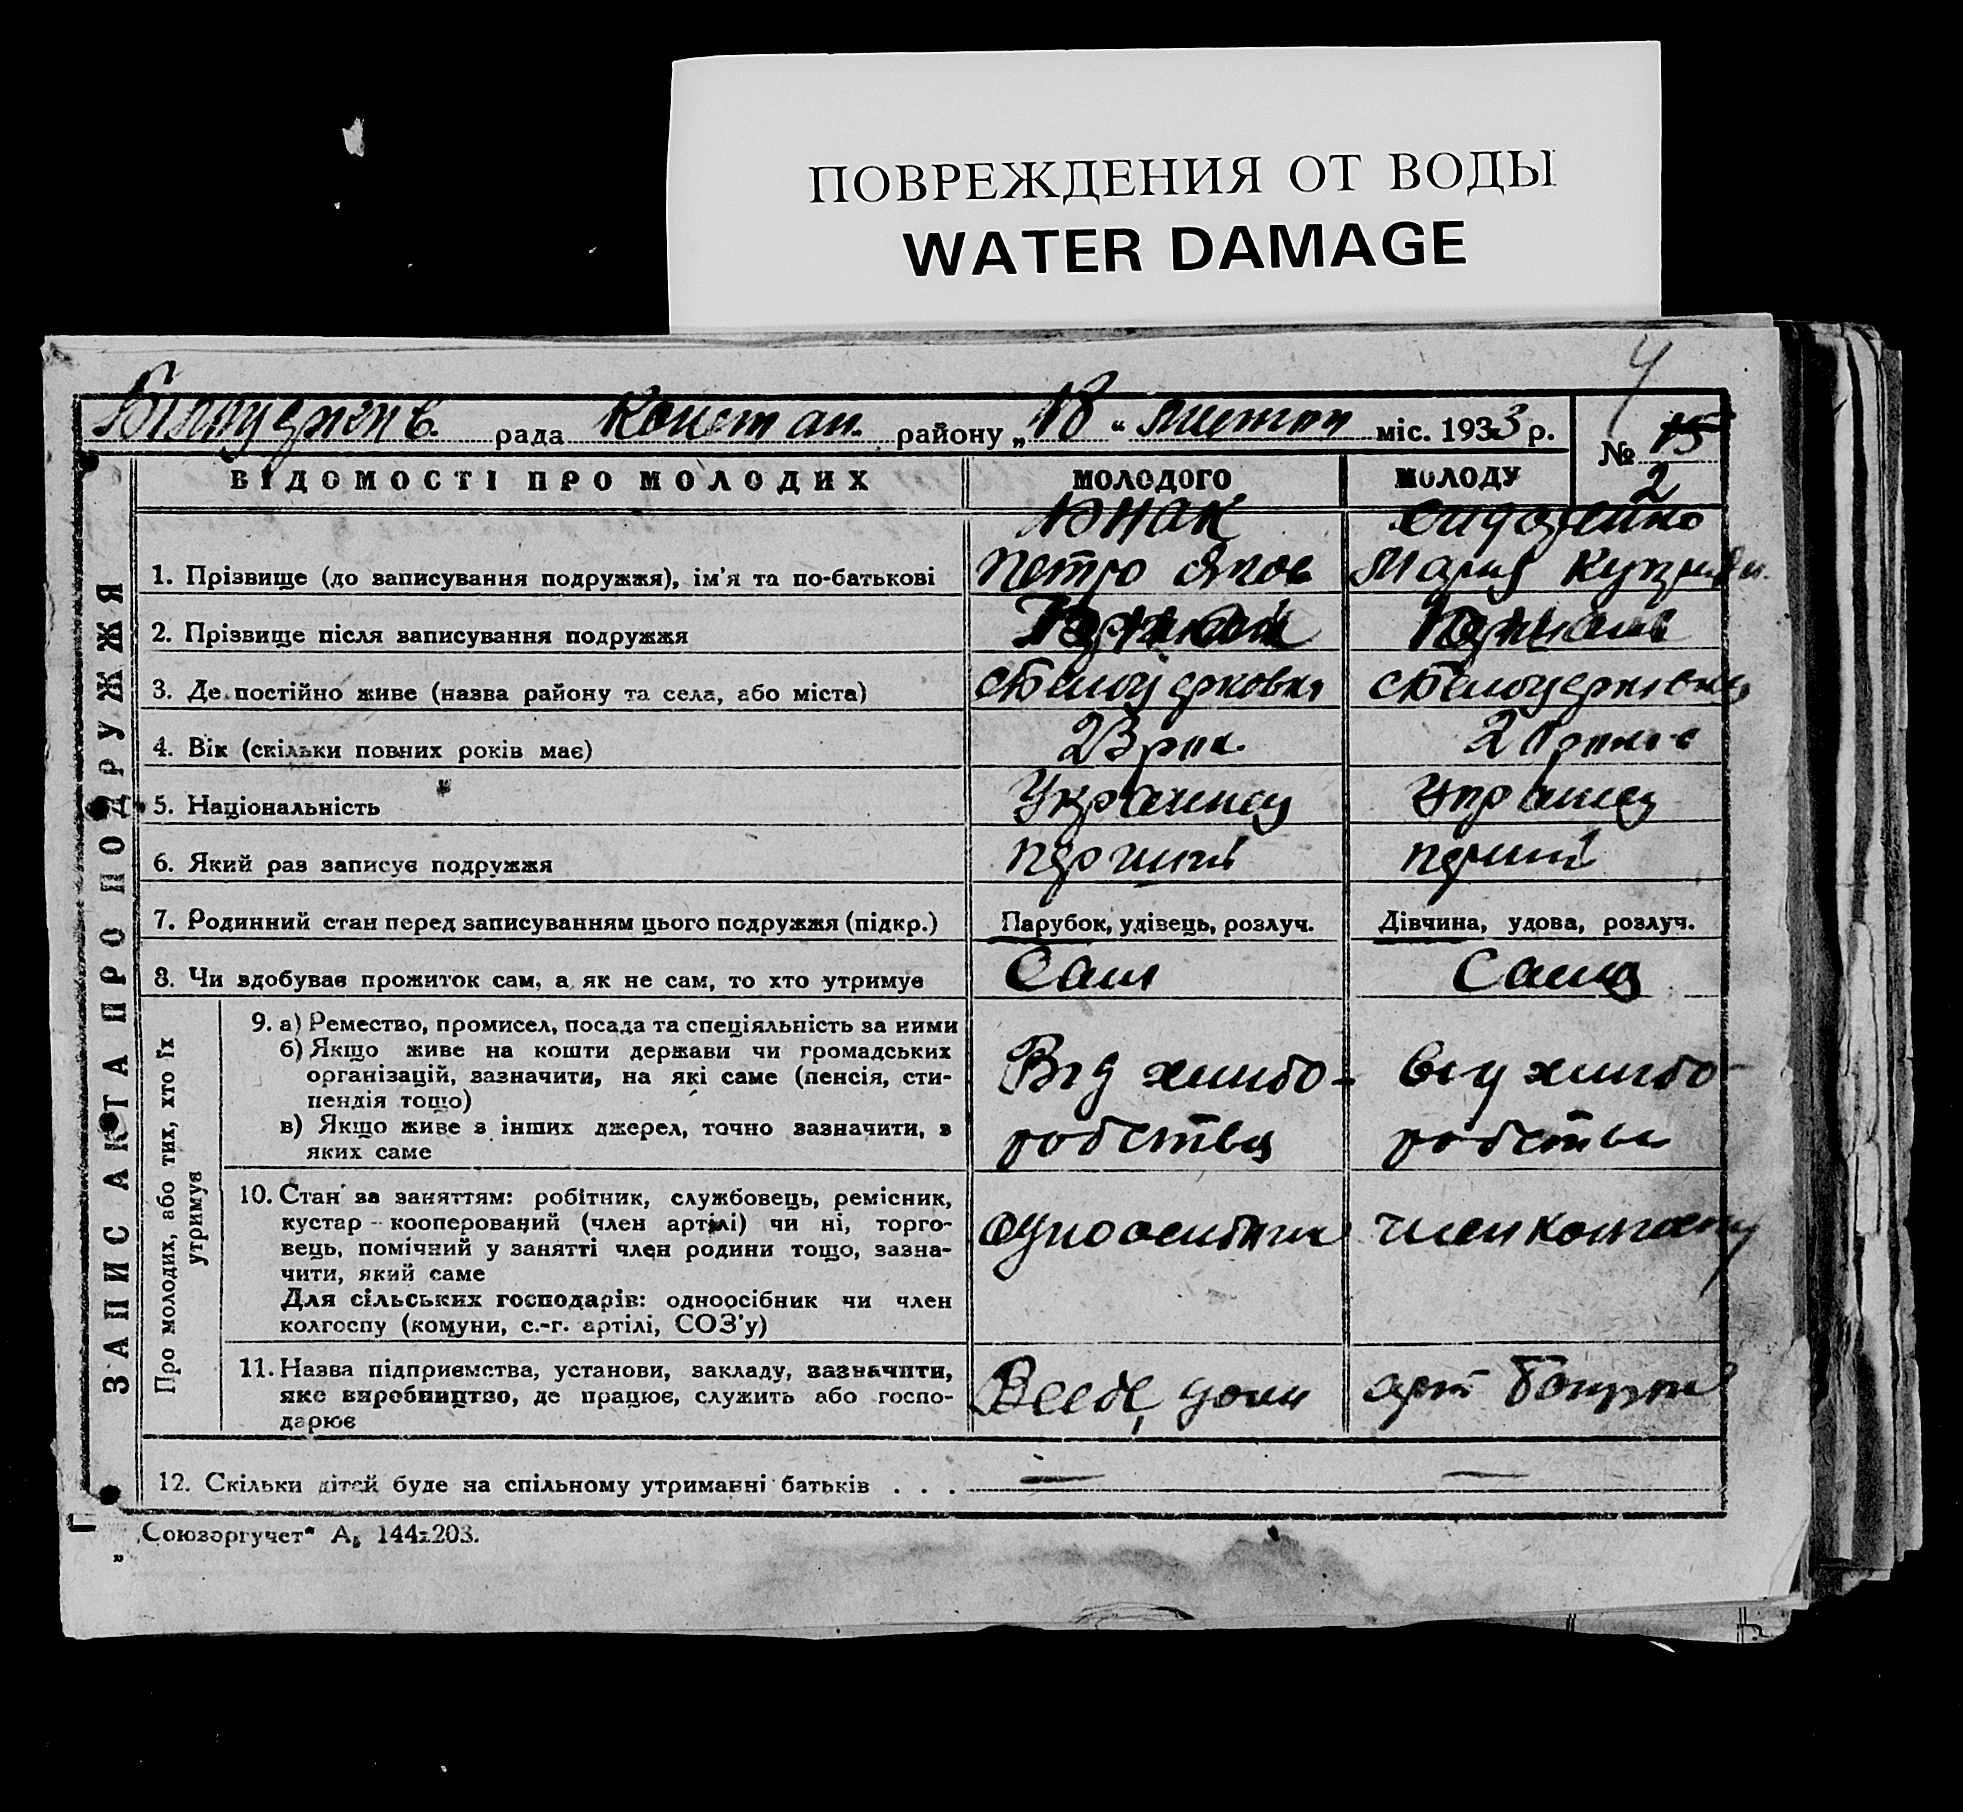 ПОВРЕЖДЕНИЯ ОТ ВОДЫ
WATER DAMAGE
4
рада Констан. району „18“ листоп міс. 1933 р.
№ 15
2
ВІДОМОСТІ ПРО МОЛОДИХ МОЛОДОГО МОЛОДУ
ЗАПИС АКТА ПРО ПОДРУЖЖЯ
Юнак
1. Прізвище (до записування подружжя), ім'я та по-батькові Петро Яков Мария
2. Прізвище після записування подружжя
3. Де постійно живе (назва району та села, або міста) с Білоцерковка с Білоцерковка
4. Вік (скільки повних років має) 23 рок.
5. Національність Украинец Украинец
6. Який раз записує подружжя перший перший
7. Родинний стан перед записуванням цього подружжя (підкр.) Парубок, удівець, розлуч. Дівчина, удова, розлуч.
8. Чи здобуває прожиток сам, а як не сам, то хто утримує Сам Сама
Про молодих, або тих, хто їх утримує
9. а) Ремество, промисел, посада та спеціяльність за ними
б) Якщо живе на кошти держави чи громадських
організацій, зазначити, на які саме (пенсія, сти-
пендія тощо)
в) Якщо живе з інших джерел, точно зазначити, з
яких саме
Від хлибо-
робства
від хлибо-
робства
10. Стан за заняттям: робітник, службовець, ремісник,
кустар - кооперований (член артілі) чи ні, торго-
вець, помічний у занятті член родини тощо, зазна-
чити, який саме
Для сільських господарів: одноосібник чи член
колгоспу (комуни, с.-г. артілі, СОЗ'у)
одноосибник член колгоспу
11. Назва підприємства, установи, закладу, зазначити,
яке виробництво, де працює, служить або госпо-
дарює
В себе дома арт
12. Скільки дітей буде на спільному утриманні батьків . . . — —
„Союзоргучет“ А₅ 144х203.